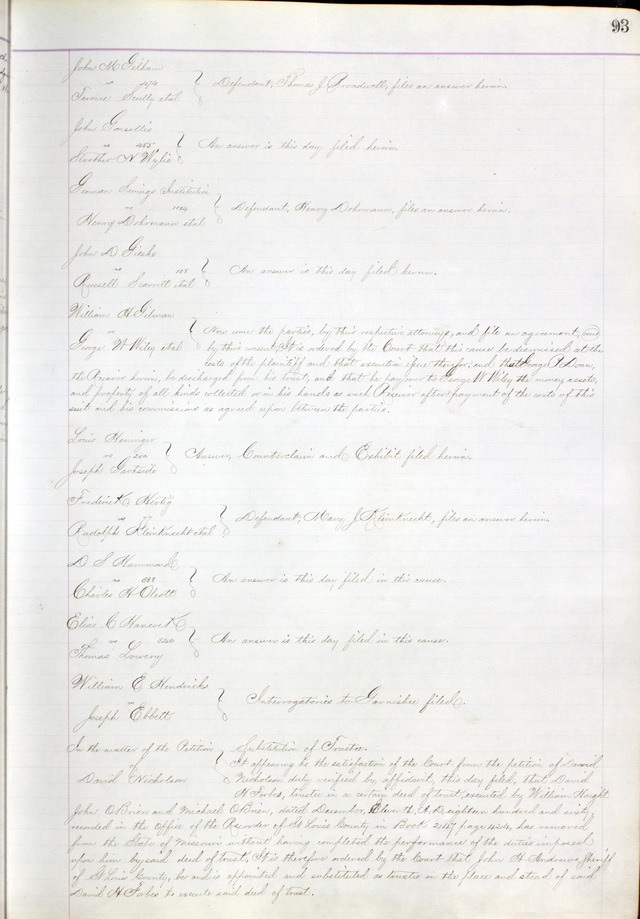 93
John M Gilham
vs 1474 Defendant, Thomas J. Broadwell, files an answer herein.
Terence Scully etal
John Gonsollis
vs 1455 An answer is this day filed herein.
Strother N Wylie
German Savings Institution
vs 1184 Defendant, Henry Dohrmann, files an answer herein.
Henry Dohrmann etal
John D Gieske
vs 103 An answer is this day filed herein.
Russell Scarritt etal
William H Gilman
vs Now come the parties, by their respective attorneys, and file an agreement, and
George W Wiley etal by their consent, It is ordered by the Court that this cause be dismissed at the
costs of the plaintiff and that execution issue therefor; and that George P. Doan,
the Receiver herein, be discharged from his trust, and that he pay over to George W Wiley the money assets,
and property of all kinds collected or in his hands as such Receiver after payment of the costs of this
suit and his commissions as agreed upon between the parties.
Louis Heninger
vs Answer, Counterclaim and Exhibit filed herein.
Joseph Gartside
Frederick Hertig
vs Defendant, Mary J Kleinknecht, files an answer herein.
Rudolph Kleinknecht etal
D S Hammond
vs An answer is this day filed in this cause.
Charles H Olcott
Elias C Hancock
vs An answer is this day filed in this cause.
Thomas Lowery
William E Hendricks
vs Interrogatories to Garnishee filed.
Joseph Ebbett
In the matter of the Petition Substitution of Trustee.
of It appearing to the satisfaction of the Court from the petition of David
David Nicholson Nicholson duly verified by affidavit, this day filed, that David
H Forbes, trustee in a certain deed of trust executed by William Haight
John OBrien and Michael OBrien, dated December, A.D. eighteen hundred and sixty
recorded in the Office of the Recorder of St Louis County in Book page has removed
from the State of Missouri without having completed the performance of the duties imposed
upon him by said deed of trust, It is therefore ordered by the Court that John H Andrews Sheriff
of St Louis County, be and is appointed and substituted as trustee in the place and stead of said
David H Forbes to execute said deed of trust.